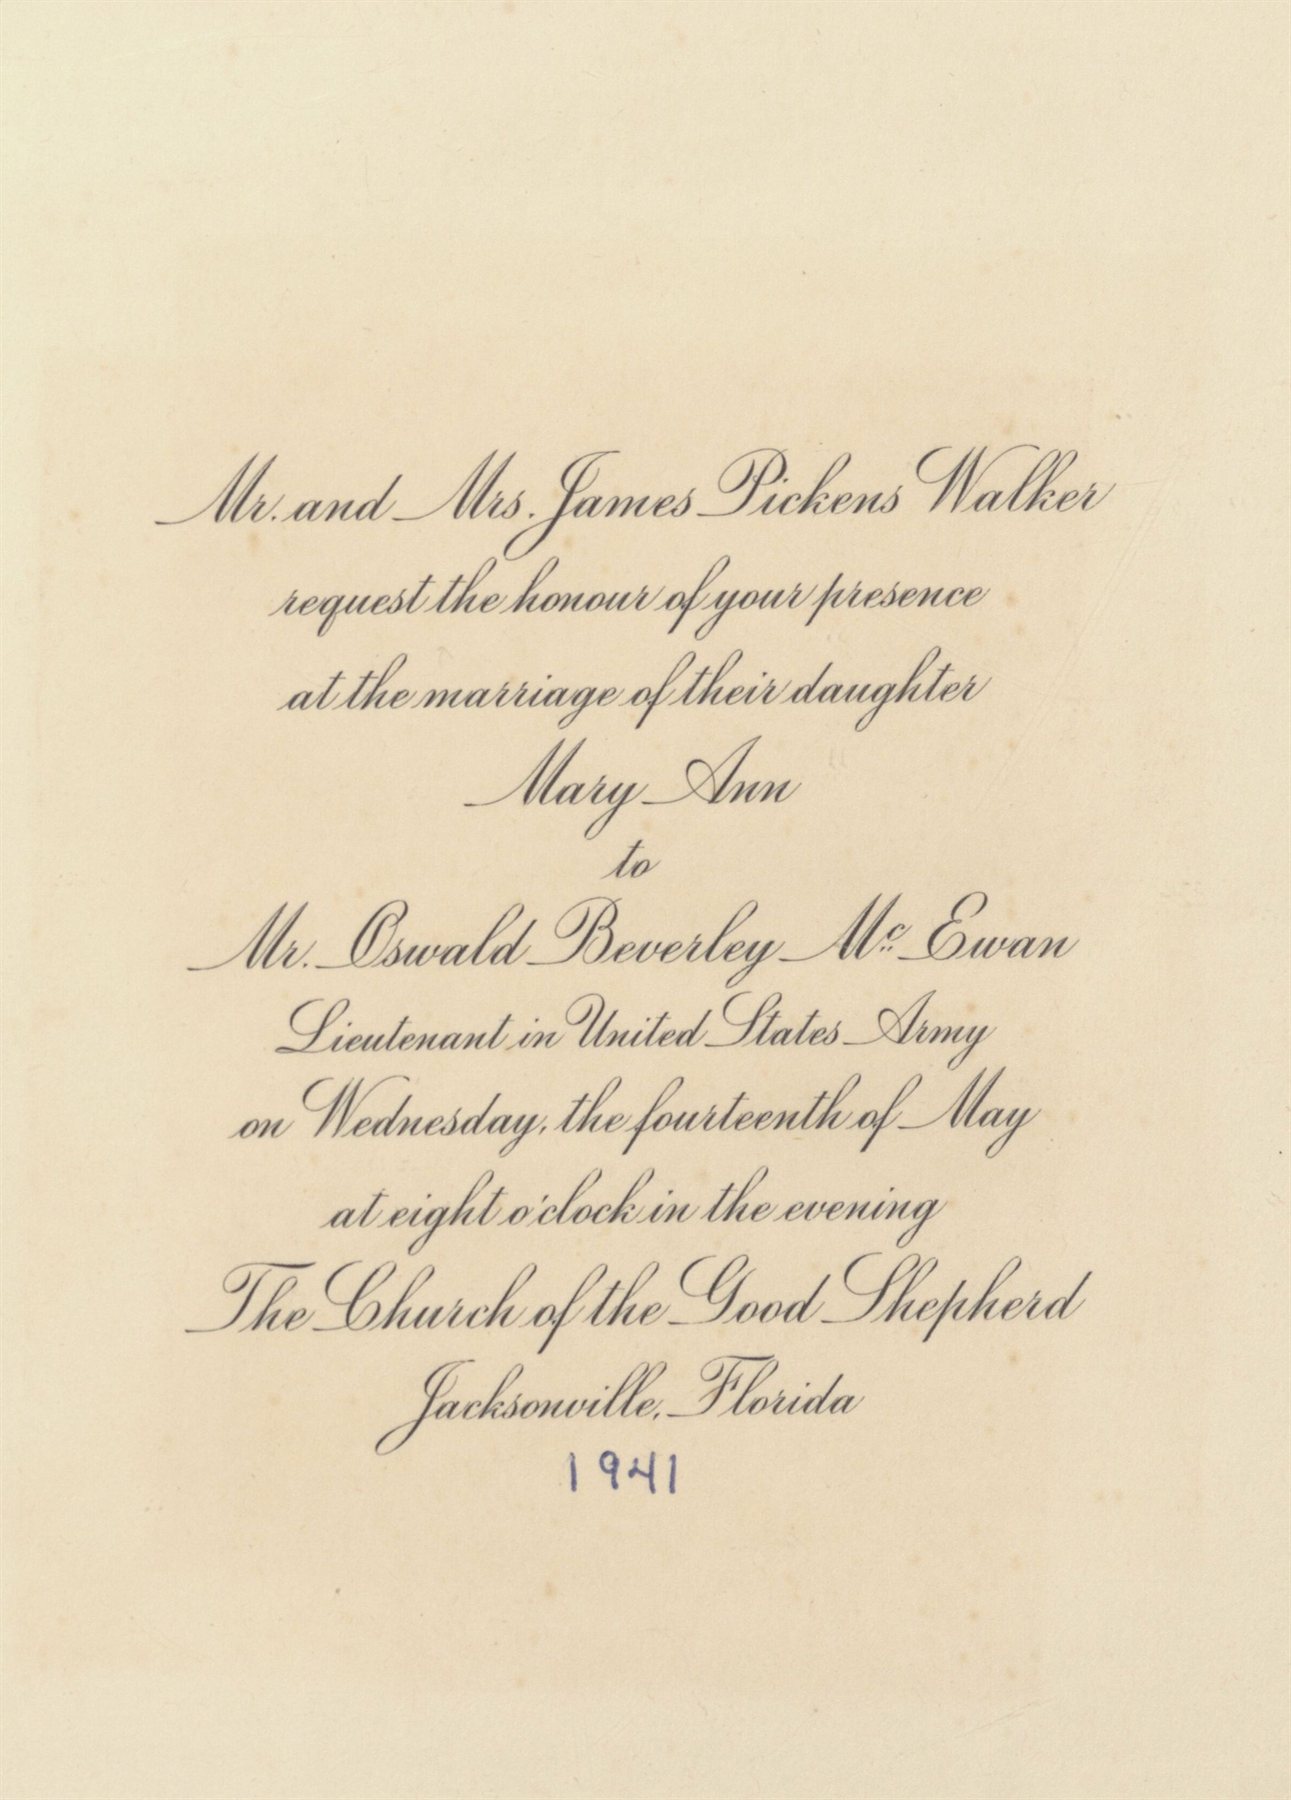 Mr. and Mrs. James Pickens Walker
request the honour of your presence
at the marriage of their daughter
Mary Ann
to
Mr. Oswald Beverley Mc Ewan
Lieutenant in United States Army
on Wednesday, the fourteenth of May
at eight o'clock in the evening
The Church of the Good Shepherd
Jacksonville, Florida
1941